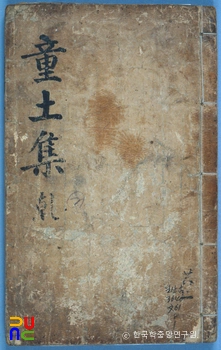 童土集 乾
共二
ⓒ 한국학중앙연구원